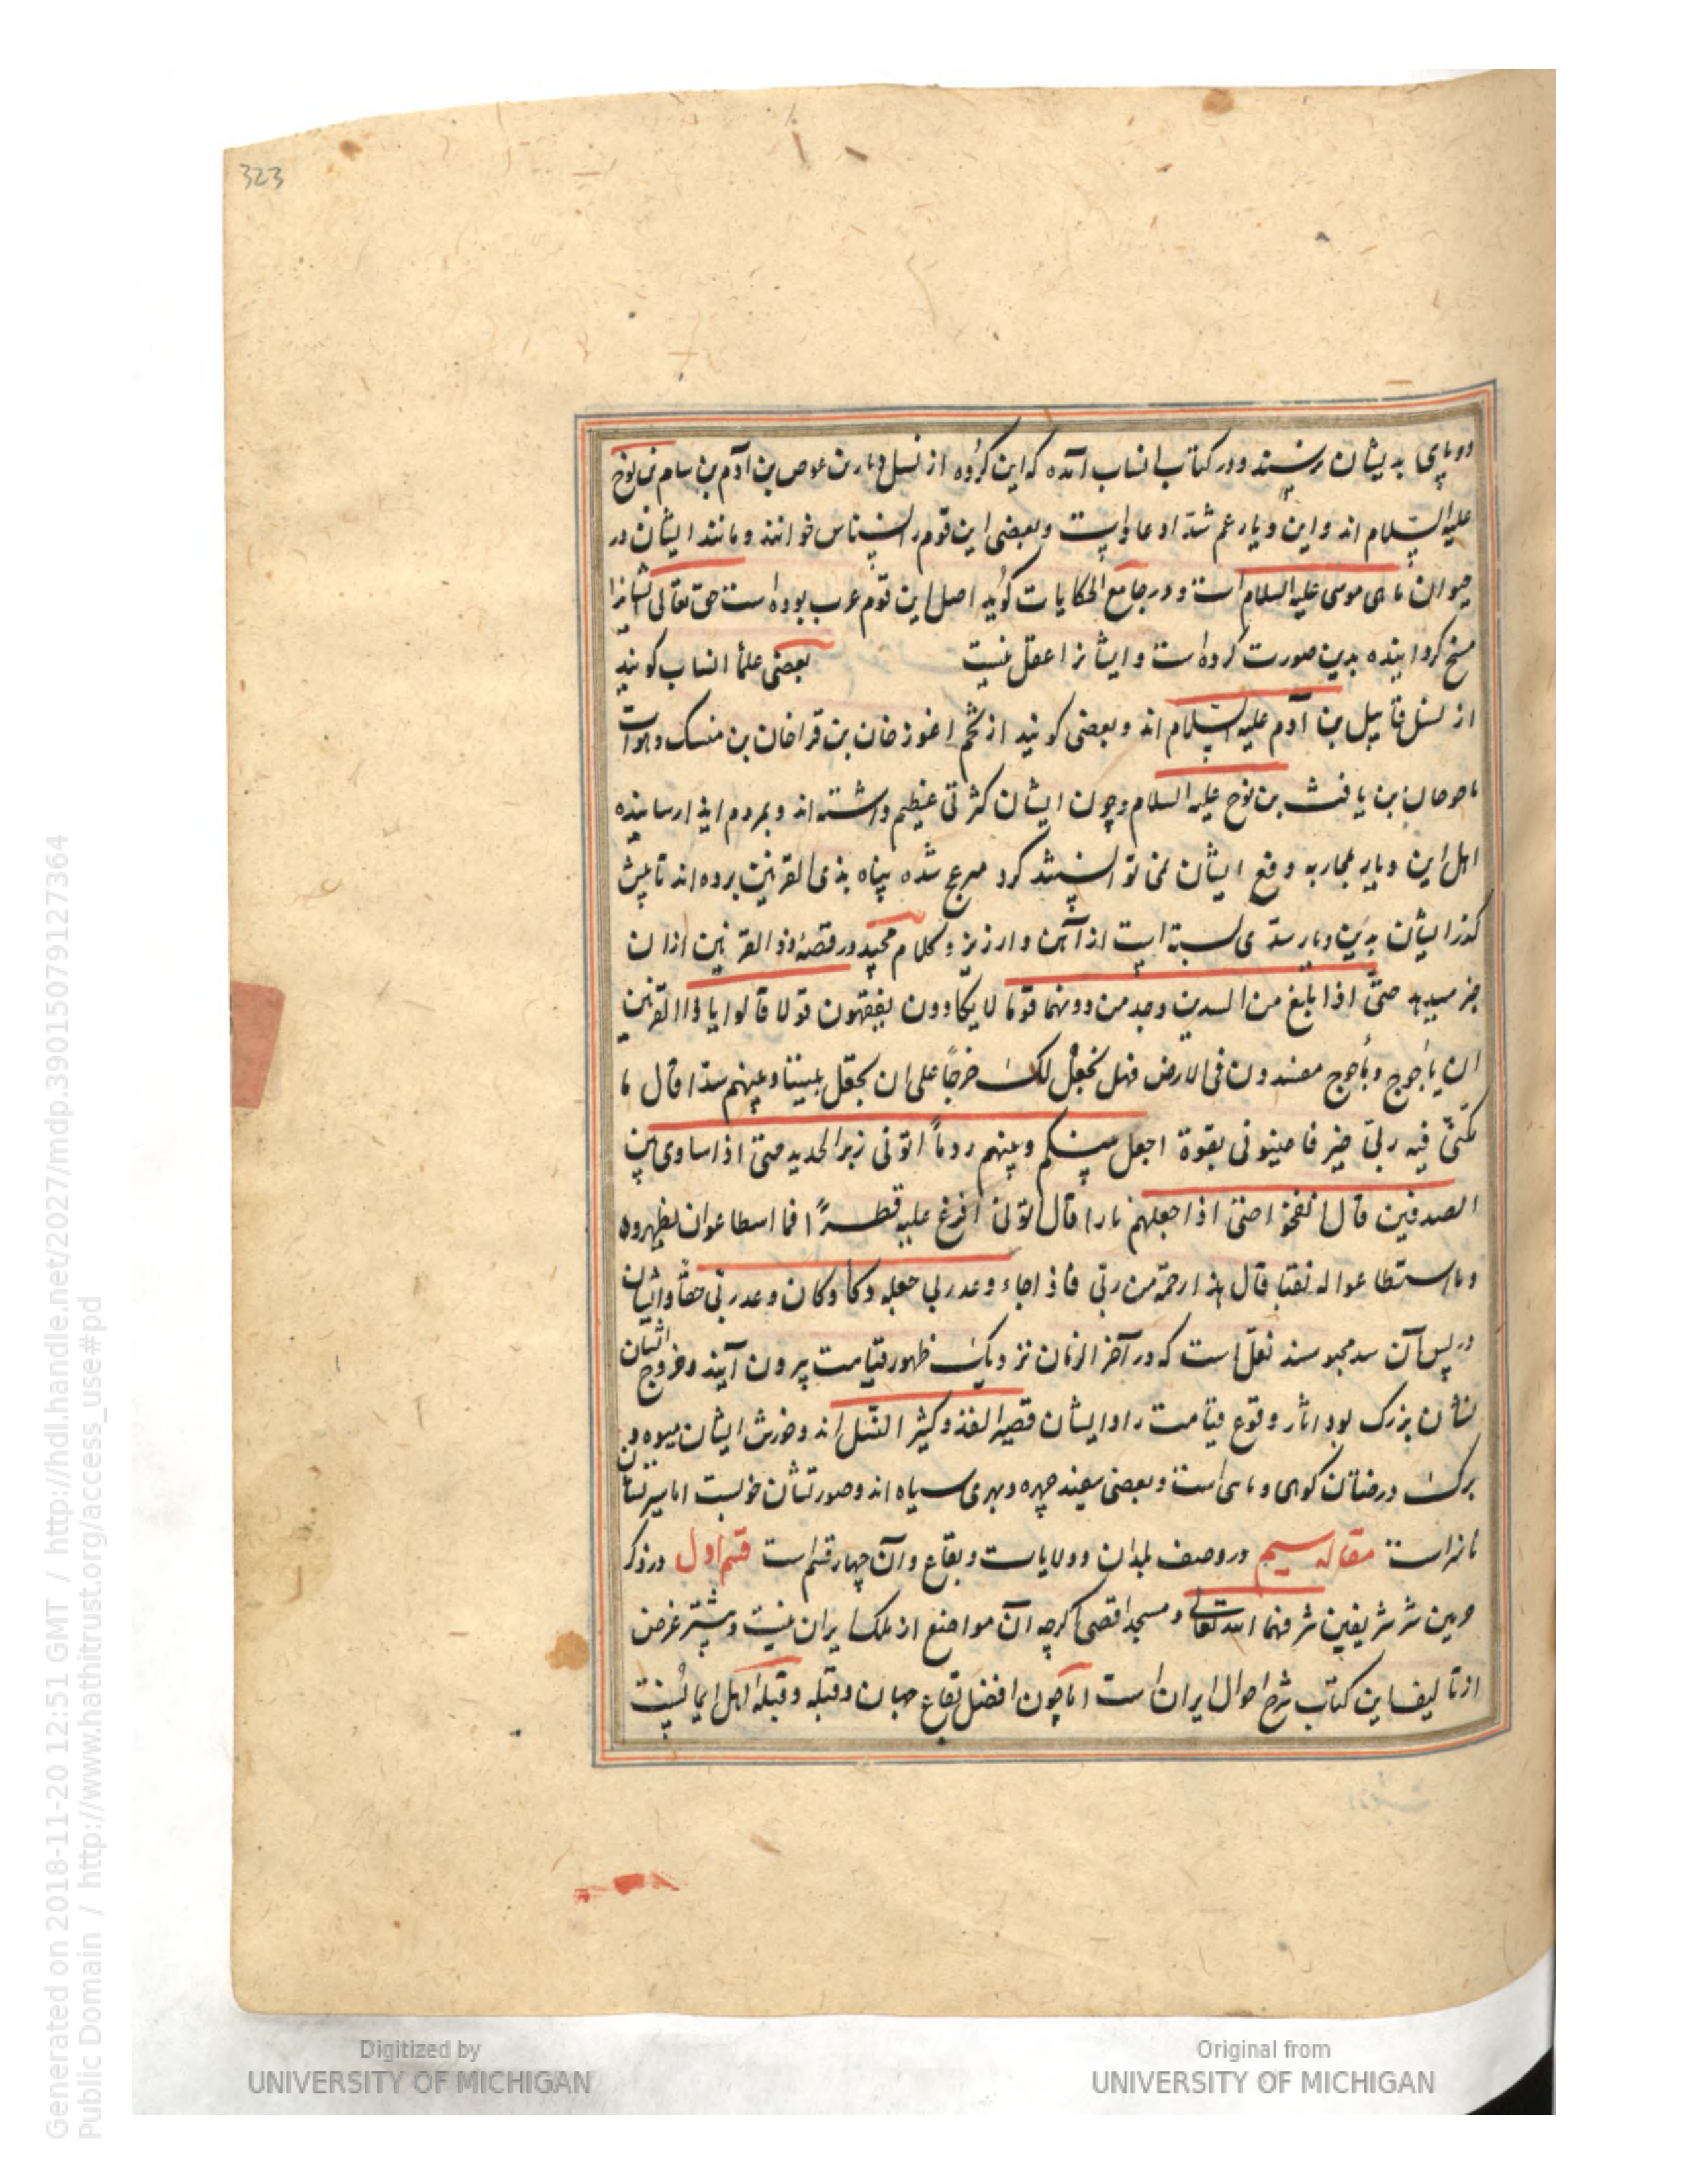 323
دوپای بدیشان نرسند و در کتاب انساب آمده که این گروه از نسل دبار بن عوص بن آدم بن سام بن نوح
علیه السلام اند و این دیار عم شداد عاد است و بعضی این قوم را نسناس خوانند و مانند ایشان در
حیوان ماهی موسی علیه السلام است و در جامع الحکایات گوید اصل این قوم عرب بوده است حق تعالی ایشانرا
مسخ کردانیده بدین صورت کرده است و ایشانرا عقل نیست بعضی علما انساب کویند
از نسل قابیل بن آدم علیه السلام اند و بعضی کویند از تخم اغوز خان بن قراخان بن منسک و هوات
بن یافث بن نوح علیه السلام و چون ایشان کثرتی عظیم داشته اند و بمردم ایذا رسانیده
اهل این دیار بمحاربه دفع ایشان نمی توانستند کرد شده پناه بذی القرنین برده اند تا پیش
کذر ایشان بدین دیار سدی بسته است از آهن و ارزیز و کلام مجید در قصهٔ ذو القرنین ازان
خبر میدهد حتی اذا بلغ من السدین وجد من دونهما قوما لا یکادون یفقهون قولا قالوا یا ذا القرنین
ان یأجوج و مأجوج مفسدون فی الارض فهل نجعل لک خرجاً علی ان تجعل بیننا و بینهم سدا قال ما
مکنی فیه ربی خیر فاعینونی بقوة اجعل بینکم و بینهم ردماً اتونی زبر الحدید حتی اذا ساوی بین
الصدفین قال انفخوا حتی اذا جعلهم نارا قال اتونی افرغ علیه قطراً فما اسطاعوا ان یظهروه
و ما استطاعوا له نقبا قال هذا رحمة من ربی فاذا جاء وعد ربی جعله دکا و کان وعد ربی حقا و ایشان
در پس آن سد محبوسند نقل است که در آخر الزمان نزدیک ظهور قیامت بیرون آیند و خروج ایشان
نشان بزرک بود اثار وقوع قیامت را و ایشان قصیر القد و کثیر النسل اند و خورش ایشان میوه و
برک درختان کوهی و ماهی است و بعضی سفید چهره و بهری سیاه اند و صورتشان خوبست اما سیرتشان
ناسزاست مقاله سیم در وصف بلدان و ولایات و بقاع و آن چهار قسم است قسم اول در ذکر
حرمین شریفین شرفهما الله تعالی و مسجد اقصی اکرچه آن مواضع از ملک ایران نیست و بیشتر غرض
از تالیف این کتاب شرح احوال ایران است اما چون افضل بقاع جهان و قبله و قبله اهل ایمانست
Digitized by
UNIVERSITY OF MICHIGAN
Original from
UNIVERSITY OF MICHIGAN
Generated on 2018-11-20 12:51 GMT / http://hdl.handle.net/2027/mdp.39015079127364
Public Domain / http://www.hathitrust.org/access_use#pd